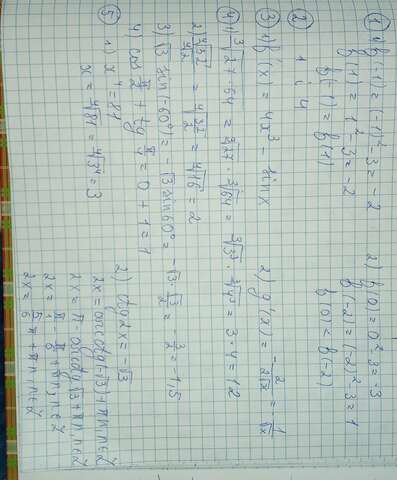 ① 1) f(-1) = (-1)² - 3 = -2
f(1) = 1² - 3 = -2
f(-1) = f(1)
2) f(0) = 0² - 3 = -3
f(-2) = (-2)² - 3 = 1
f(0) < f(-2)
② 1 и 4
③ 1) f'(x) = 4x³ - sin x 2) g'(x) = -2/2√x = -1/√x
④ 1) ³√27·64 = ³√27 · ³√64 = ³√3³ · ³√4³ = 3·4 = 12
2) ⁴√32/⁴√2 = ⁴√32/2 = ⁴√16 = 2
3) √3 sin(-60°) = -√3 sin 60° = -√3 · √3/2 = -3/2 = -1,5
4) cos π/2 + tg π/4 = 0 + 1 = 1
⑤ 1) x⁴ = 81
x = ⁴√81 = ⁴√3⁴ = 3
2) ctg 2x = -√3
2x = arcctg(-√3) + πn, n∈Z
2x = π - arcctg √3 + πn, n∈Z
2x = π - π/6 + πn, n∈Z
2x = 5/6 π + πn, n∈Z